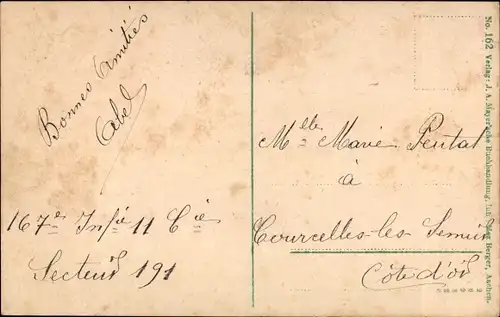 Bonnes Amitiés
Abel
167e Infie 11 Cie
Secteur 191
Melle Marie Pentat
à
Courcelles-les-Semur
Côte d'or
No. 162 Verlag: J. A. Mayer'sche Buchhandlung, Inh. Berger, Aachen.